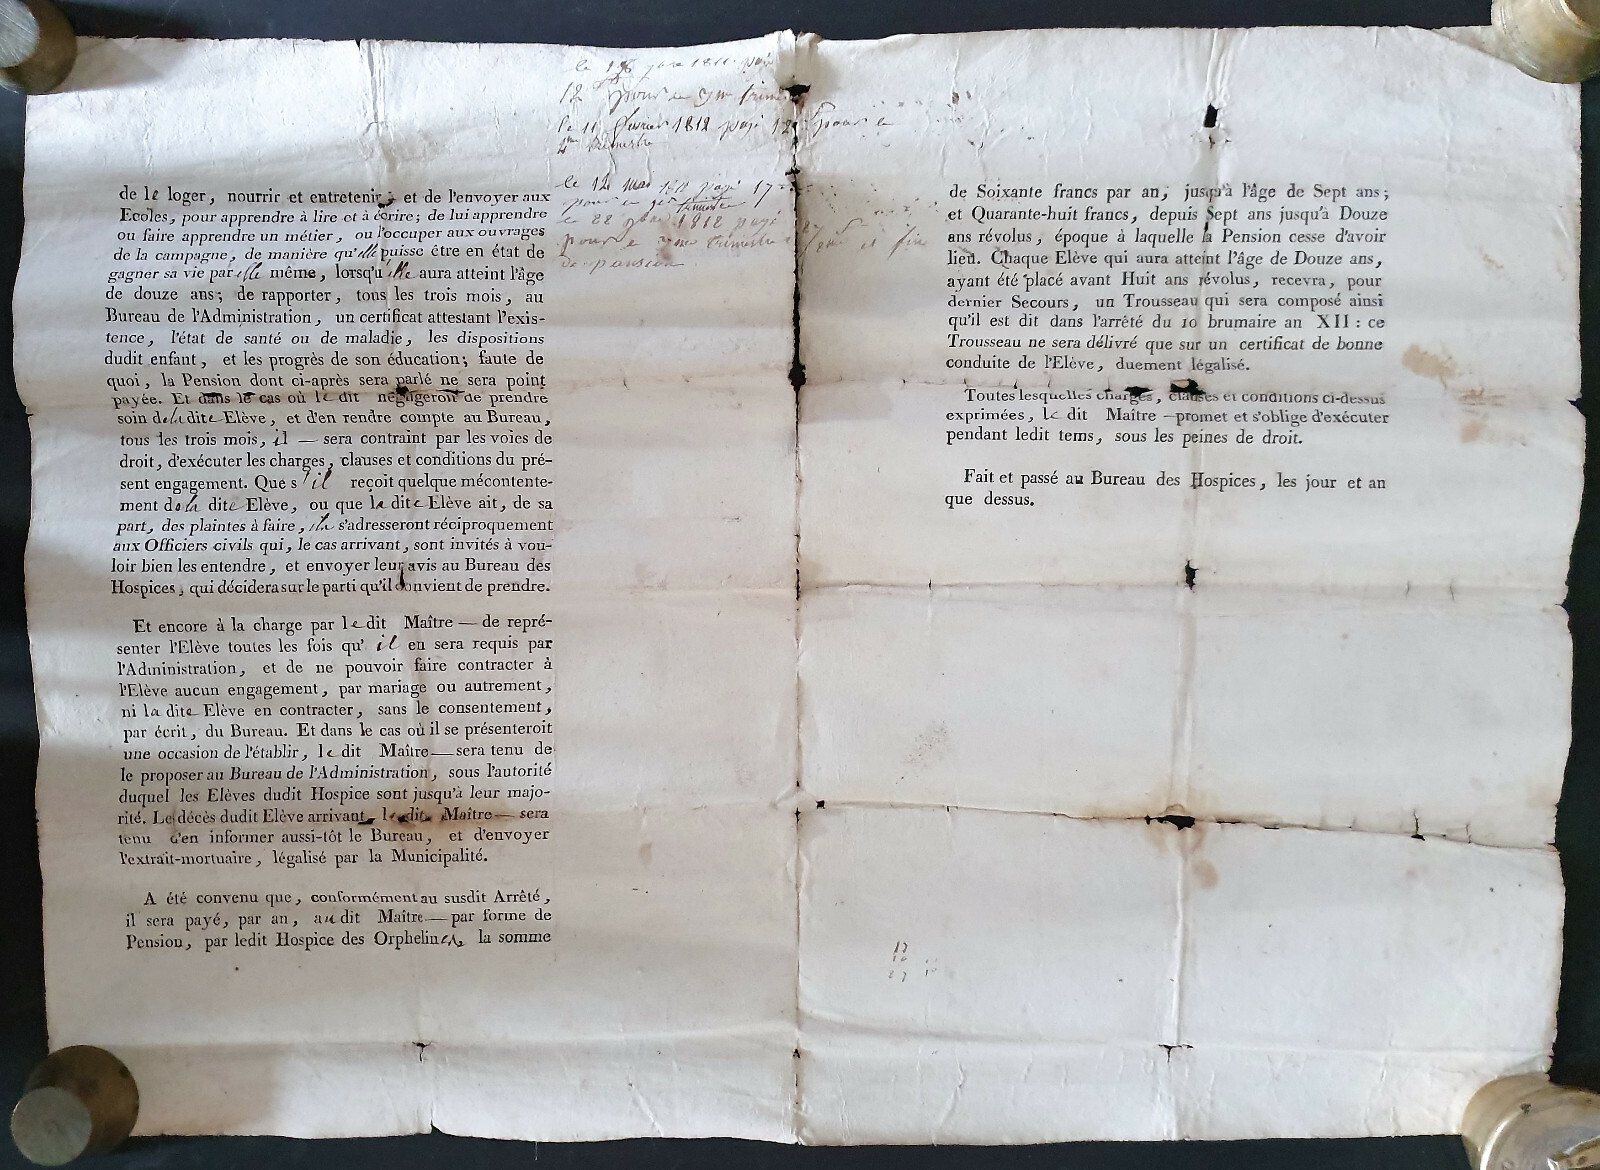 de le loger, nourrir et entretenir; et de l'envoyer aux
Ecoles, pour apprendre à lire et à écrire; de lui apprendre
ou faire apprendre un métier, ou l'occuper aux ouvrages
de la campagne, de manière qu'elle puisse être en état de
gagner sa vie par elle même, lorsqu'elle aura atteint l'âge
de douze ans; de rapporter, tous les trois mois, au
Bureau de l'Administration, un certificat attestant l'exis-
tence, l'état de santé ou de maladie, les dispositions
dudit enfant, et les progrès de son éducation; faute de
quoi, la Pension dont ci-après sera parlé ne sera point
payée. Et dans le cas où le dit négligeroit de prendre
soin de la dite Elève, et d'en rendre compte au Bureau,
tous les trois mois, il — sera contraint par les voies de
droit, d'exécuter les charges, clauses et conditions du pré-
sent engagement. Que s'il reçoit quelque mécontente-
ment de la dite Elève, ou que la dite Elève ait, de sa
part, des plaintes à faire, ils s'adresseront réciproquement
aux Officiers civils qui, le cas arrivant, sont invités à vou-
loir bien les entendre, et envoyer leur avis au Bureau des
Hospices, qui décidera sur le parti qu'il convient de prendre.
Et encore à la charge par le dit Maître — de repré-
senter l'Elève toutes les fois qu'il en sera requis par
l'Administration, et de ne pouvoir faire contracter à
l'Elève aucun engagement, par mariage ou autrement,
ni la dite Elève en contracter, sans le consentement,
par écrit, du Bureau. Et dans le cas où il se présenteroit
une occasion de l'établir, le dit Maître — sera tenu de
le proposer au Bureau de l'Administration, sous l'autorité
duquel les Elèves dudit Hospice sont jusqu'à leur majo-
rité. Le décès dudit Elève arrivant, le dit Maître — sera
tenu d'en informer aussi-tôt le Bureau, et d'envoyer
l'extrait-mortuaire, légalisé par la Municipalité.
A été convenu que, conformément au susdit Arrêté,
il sera payé, par an, au dit Maître — par forme de
Pension, par ledit Hospice des Orphelines, la somme
le 1811 payé
12 pour le trime
le 11 février 1812 payé 12 pour le
4me trimestre
le 12 mai 1812 payé 17
pour le trimestre
le 22 1812 payé
pour le trimestre et fin
de pansion
de Soixante francs par an, jusqu'à l'âge de Sept ans;
et Quarante-huit francs, depuis Sept ans jusqu'à Douze
ans révolus, époque à laquelle la Pension cesse d'avoir
lieu. Chaque Elève qui aura atteint l'âge de Douze ans,
ayant été placé avant Huit ans révolus, recevra, pour
dernier Secours, un Trousseau qui sera composé ainsi
qu'il est dit dans l'arrêté du 10 brumaire an XII: ce
Trousseau ne sera délivré que sur un certificat de bonne
conduite de l'Elève, duement légalisé.
Toutes lesquelles charges, clauses et conditions ci-dessus
exprimées, le dit Maître — promet et s'oblige d'exécuter
pendant ledit tems, sous les peines de droit.
Fait et passé au Bureau des Hospices, les jour et an
que dessus.